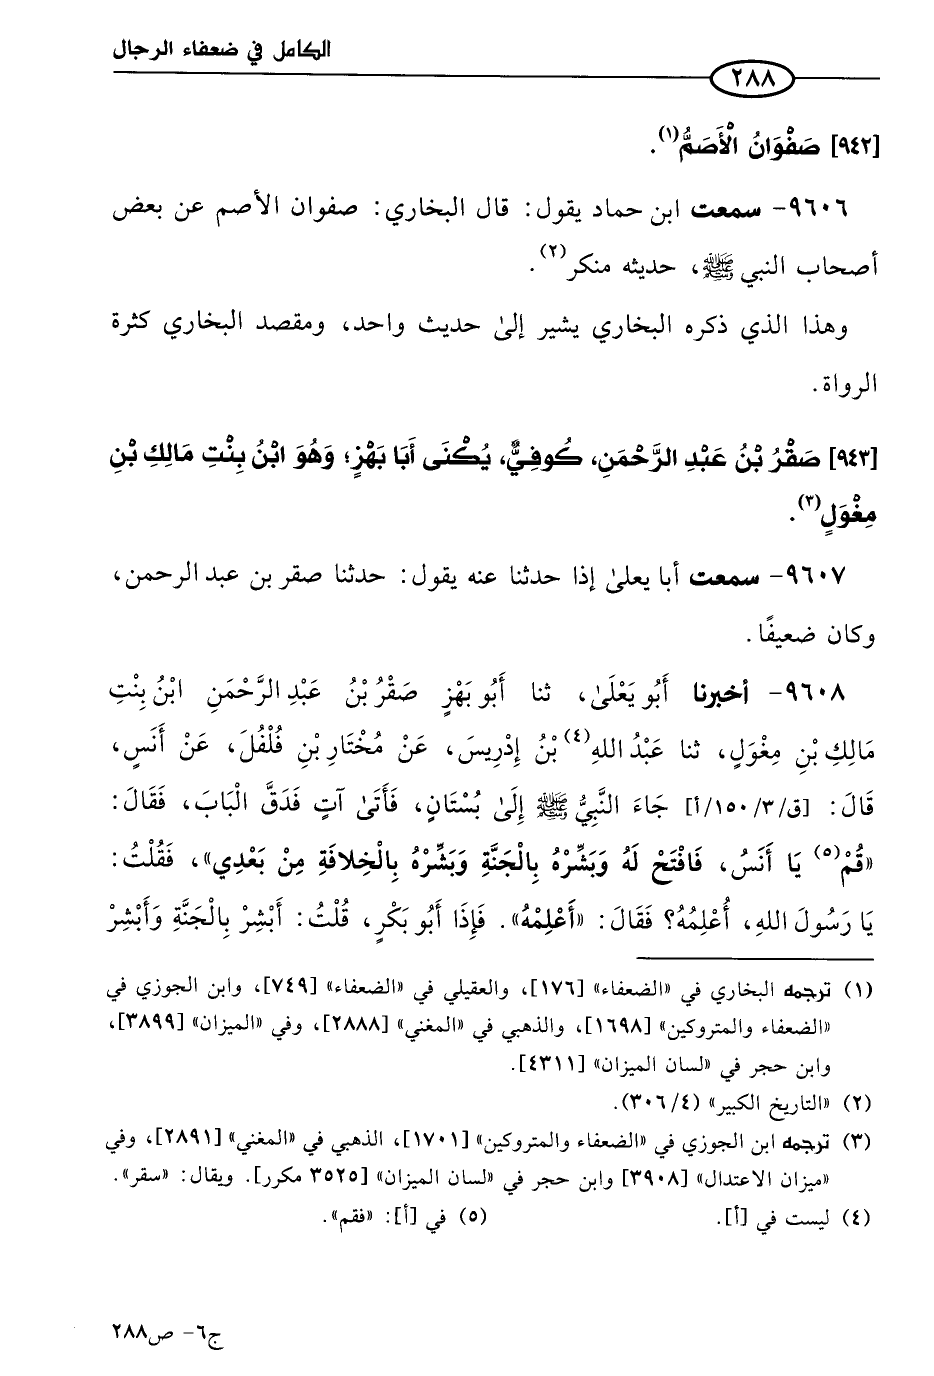 الكامل في ضعفاء الرجال
٢٨٨
[٩٤٢] صَفْوَانُ الْأَصَمُّ(١).
٩٦٠٦- سمعت ابن حماد يقول: قال البخاري: صفوان الأصم عن بعض
أصحاب النبي ﷺ، حديثه منكر(٢).
وهذا الذي ذكره البخاري يشير إلىٰ حديث واحد، ومقصد البخاري كثرة
الرواة.
[٩٤٣] صَقْرُ بْنُ عَبْدِ الرَّحْمَنِ، كُوفِيٌّ، يُكْنَى أَبَا بَهْزٍ؛ وَهُوَ ابْنُ بِنْتِ مَالِكِ بْنِ
مِغْوَلٍ(٣).
٩٦٠٧- سمعت أبا يعلىٰ إذا حدثنا عنه يقول: حدثنا صقر بن عبد الرحمن،
وكان ضعيفًا.
٩٦٠٨- أخبرنا أَبُو يَعْلَىٰ، ثنا أَبُو بَهْزٍ صَقْرُ بْنُ عَبْدِ الرَّحْمَنِ ابْنُ بِنْتِ
مَالِكِ بْنِ مِغْوَلٍ، ثنا عَبْدُ اللهِ(٤) بْنُ إِدْرِيسَ، عَنْ مُخْتَارِ بْنِ فُلْفُلَ، عَنْ أَنَسٍ،
قَالَ: [ق/٣/١٥٠/أ] جَاءَ النَّبِيُّ ﷺ إِلَىٰ بُسْتَانٍ، فَأَتَىٰ آتٍ فَدَقَّ الْبَابَ، فَقَالَ:
«قُمْ(٥) يَا أَنَسُ، فَافْتَحْ لَهُ وَبَشِّرْهُ بِالْجَنَّةِ وَبَشِّرْهُ بِالْخِلافَةِ مِنْ بَعْدِي»، فَقُلْتُ:
يَا رَسُولَ اللهِ، أُعْلِمُهُ؟ فَقَالَ: «أَعْلِمْهُ». فَإِذَا أَبُو بَكْرٍ، قُلْتُ: أَبْشِرْ بِالْجَنَّةِ وَأَبْشِرْ
(١) ترجمه البخاري في «الضعفاء» [١٧٦]، والعقيلي في «الضعفاء» [٧٤٩]، وابن الجوزي في
«الضعفاء والمتروكين» [١٦٩٨]، والذهبي في «المغني» [٢٨٨٨]، وفي «الميزان» [٣٨٩٩]،
وابن حجر في «لسان الميزان» [٤٣١١].
(٢) «التاريخ الكبير» (٤/ ٣٠٦).
(٣) ترجمه ابن الجوزي في «الضعفاء والمتروكين» [١٧٠١]، الذهبي في «المغني» [٢٨٩١]، وفي
«ميزان الاعتدال» [٣٩٠٨] وابن حجر في «لسان الميزان» [٣٥٢٥ مكرر]. ويقال: «سقر».
(٤) ليست في [أ]. (٥) في [أ]: «فقم».
ج٦- ص٢٨٨